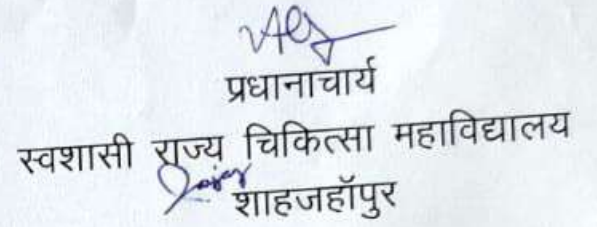 प्रधानाचार्य
स्वशासी राज्य चिकित्सा महाविद्यालय
शाहजहॉपुर